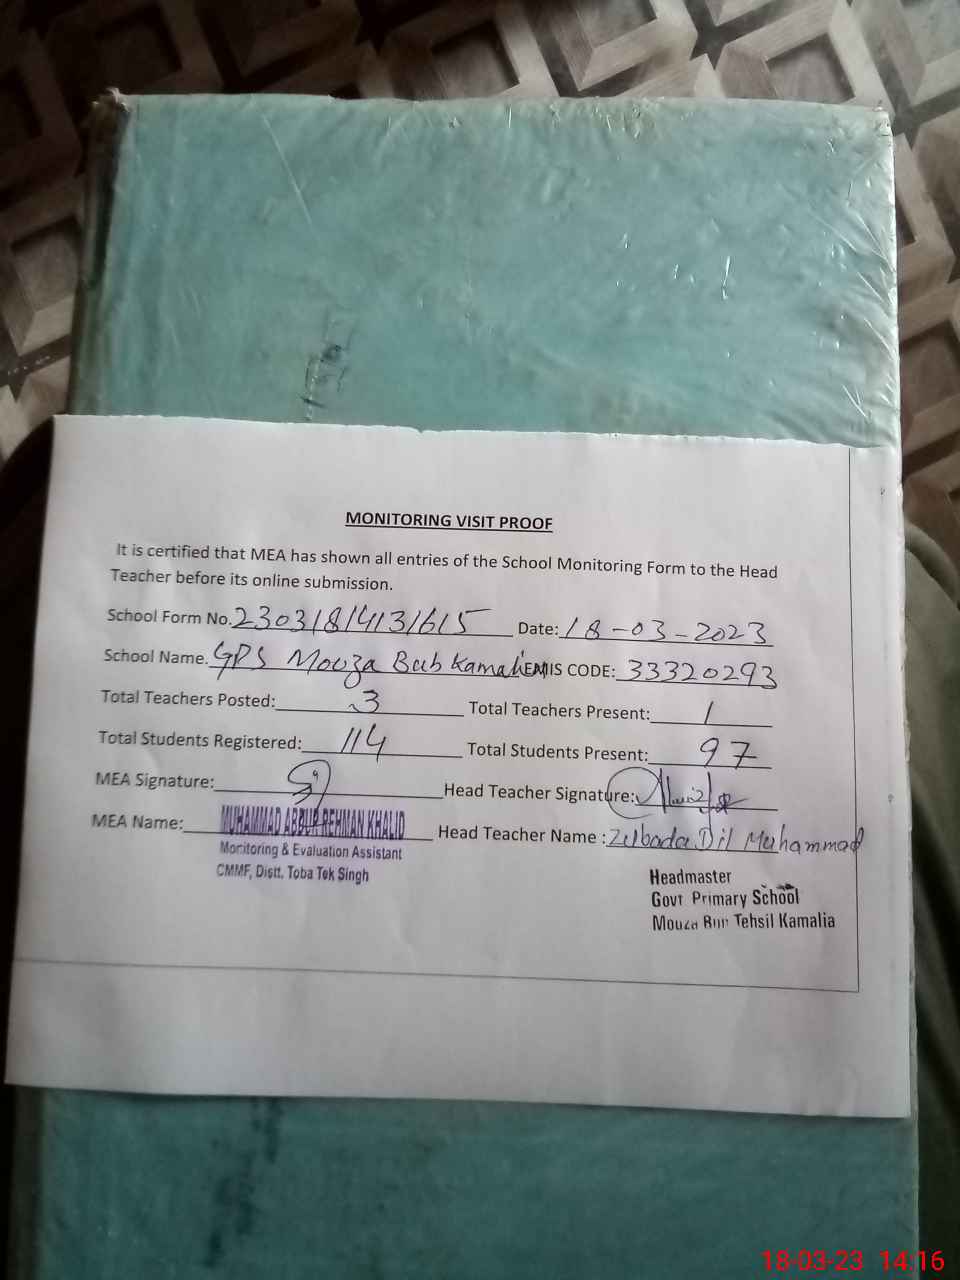 MONITORING VISIT PROOF
It is certified that MEA has shown all entries of the School Monitoring Form to the Head
Teacher before its online submission.
School Form No. 23031814131615 Date: 18-03-2023
School Name. GPS Mouza Bub Kamalia EMIS CODE: 33320293
Total Teachers Posted: 3 Total Teachers Present: 1
Total Students Registered: 114 Total Students Present: 97
MEA Signature: Head Teacher Signature:
MEA Name: MUHAMMAD ABDUR REHMAN KHALID Head Teacher Name : Dil Muhammad
Monitoring & Evaluation Assistant
CMMF, Distt. Toba Tek Singh
Headmaster
Govt Primary School
Mouza Tehsil Kamalia
18-03-23 14:16